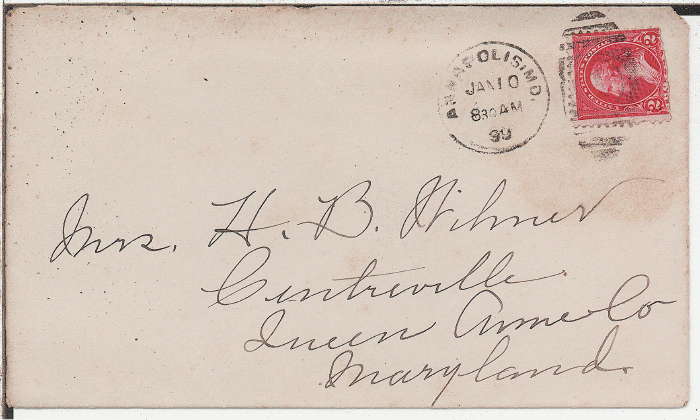 ANNAPOLIS, MD.
JAN 10
830 AM
99
2 2
Mrs. H. B. Wilmer
Centreville
Queen Anne Co
Maryland.